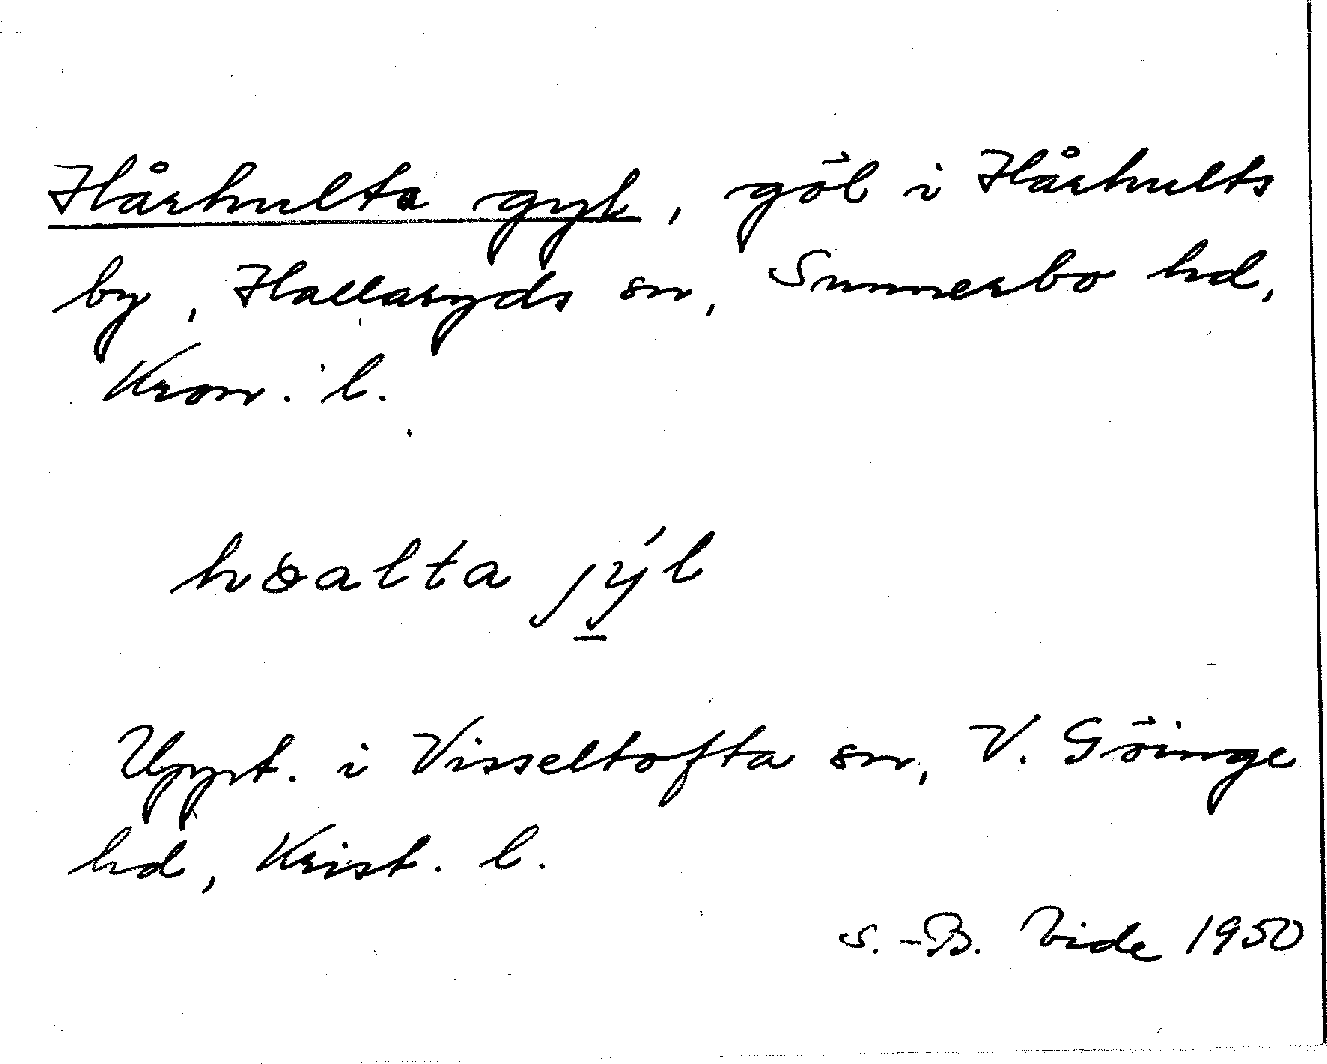 Hårhulta gyl, göl i Hårhults
by, Hallaryds sn, Sunnerbo hd,
Kron. l.
hɷalta jýl
Uppt. i Visseltofta sn, V. Göinge
hd, Krist. l.
S.-B. Vide 1950